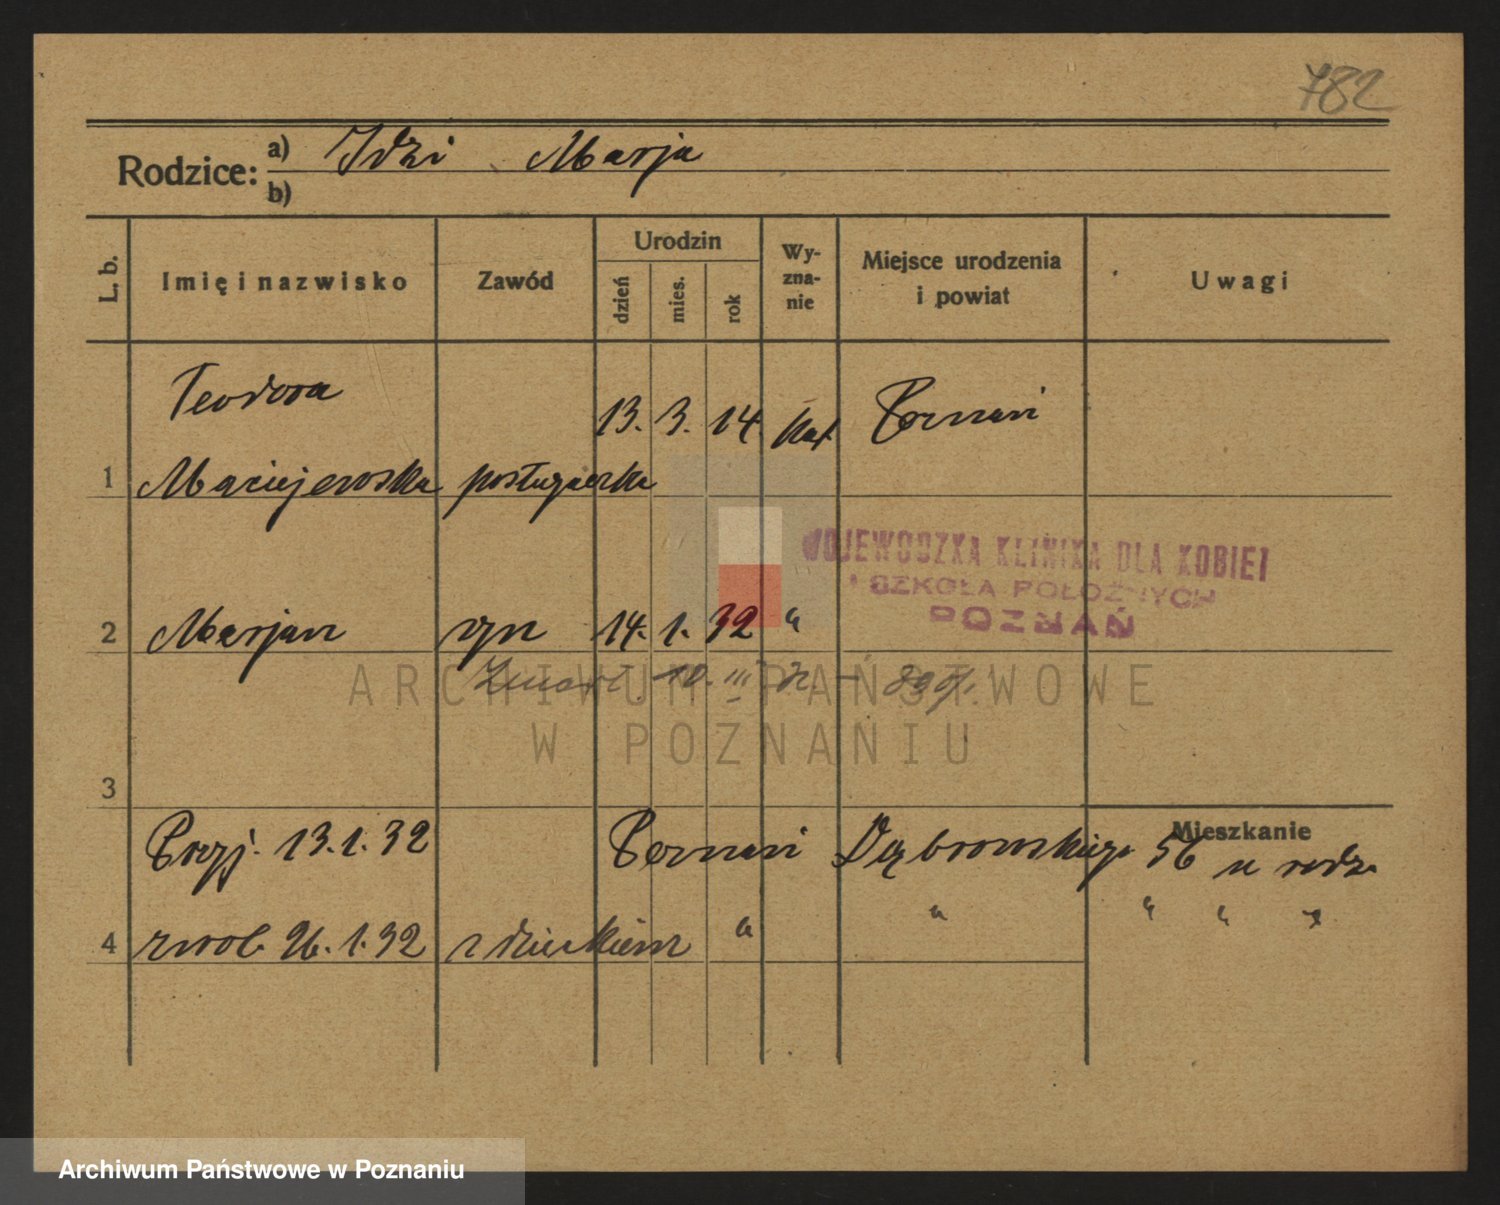 782
Rodzice: a) Idzi Marja
b)
L. b. Imię i nazwisko Zawód Urodzin dzień mies. rok Wy-zna-nie Miejsce urodzenia i powiat Uwagi
Teodora
13. 3. 14. kat Poznań
1 Maciejewska posługaczka
WOJEWÓDZKA KLINIKA DLA KOBIET
I SZKOŁA POŁOŻNYCH
POZNAŃ
2 Marjan syn 14. 1. 32 "
Zmarł. 10. III 32
ARCHIWUM PAŃSTWOWE
W POZNANIU
3
Mieszkanie
Przyj. 13.1.32 Poznań Dąbrowskiego 56 u rodz.
4 zwol. 26.1.32 z dzieckiem " " " " "
Archiwum Państwowe w Poznaniu